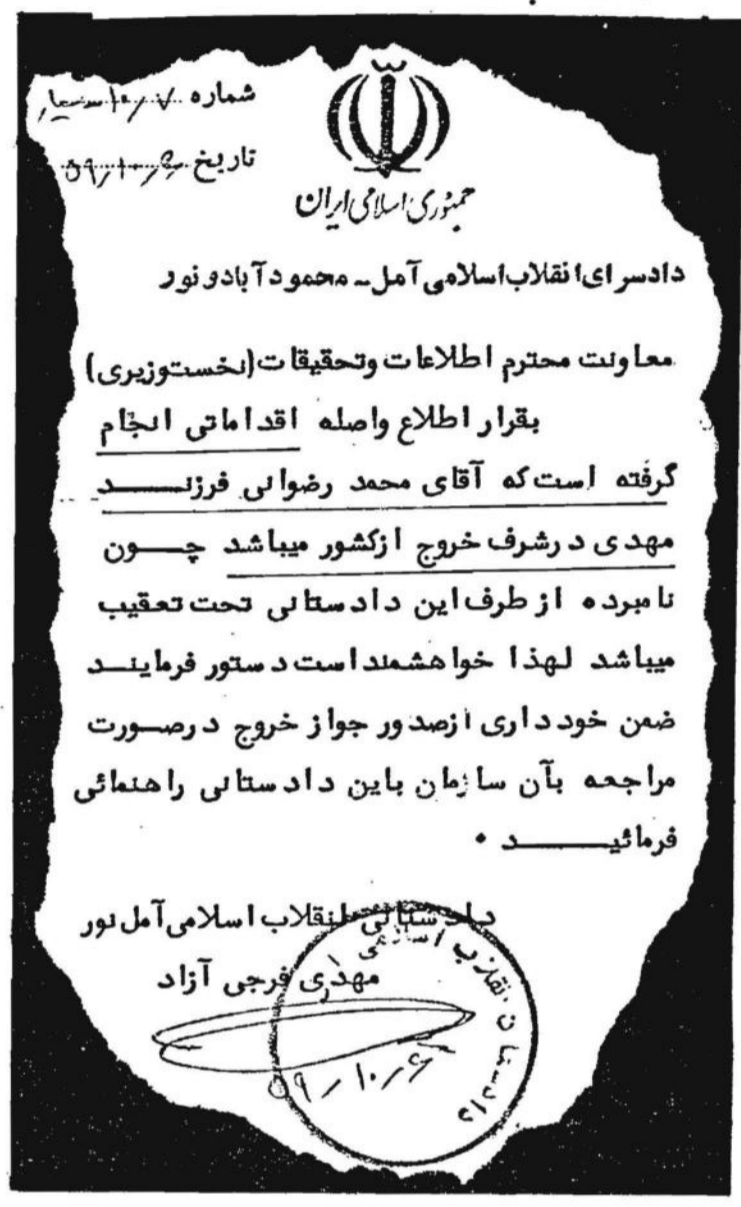 شماره
تاریخ ۵۹/۱۰/۶
جمهوری اسلامی ایران
دادسرای انقلاب اسلامی آمل ـ محمودآباد و نور
معاونت محترم اطلاعات وتحقیقات (نخست‌وزیری)
بقرار اطلاع واصله اقداماتی انجام
گرفته است که آقای محمد رضوانی فرزنـــد
مهدی درشرف خروج ازکشور میباشد چـــون
نامبرده از طرف این دادستانی تحت تعقیب
میباشد لهذا خواهشمند است دستور فرماینــد
ضمن خودداری ازصدور جواز خروج درصــورت
مراجعه بآن سازمان باین دادستانی راهنمائی
فرمائیـــــد ۰
دادستانی انقلاب اسلامی آمل نور
مهدی فرجی آزاد
دادستان انقلاب اسلامی
۵۹/۱۰/۶